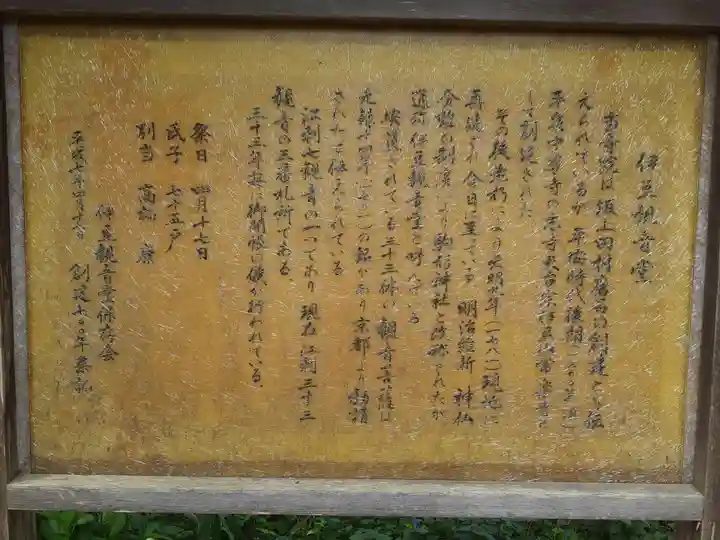 伊豆観音堂
当寺院は坂上田村麿呂の創建とも伝
えられているが 平安時代後期
平泉中尊寺の
して創建された
その後 により天明元年(一七八一)現地に
再建され今日に至っている 明治維新 神仏
分離の制 により駒形神社と改称されたが
通称伊豆観音堂と呼ばれる
安置されている三十三体の観音菩薩は
元禄十四年(一七〇一)の銘があり京都より勧請
されたと伝えられている
江刺七観音の一つであり 現在江刺三十三
観音の三番札所である
三十三年毎に御開帳の儀が行われている
祭日 四月十七日
氏子 七十五戸
別当 高
平成七年四月十六日 創建 〇〇年 記
伊豆観音堂保存会